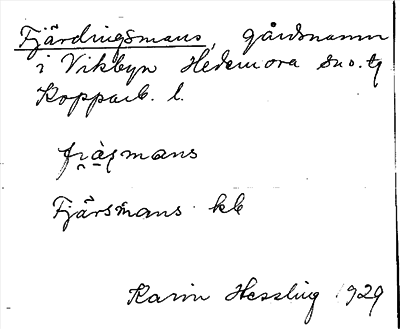 Fjärdingsmans, gårdsnamn
i Vikbyn Hedemora sn o. tg
Kopparb. l.
Fjärsmans kb
Karin Hessling 1929